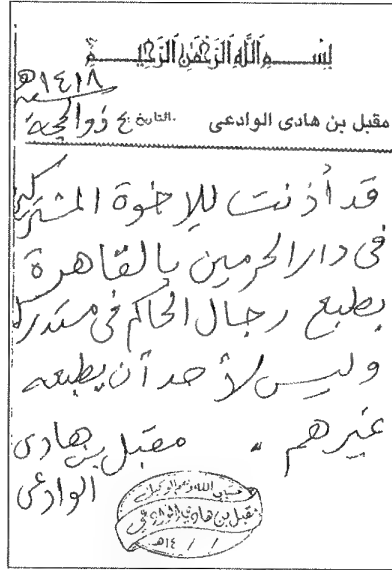 بسم الله الرحمن الرحيم
مقبل بن هادى الوادعى
التاريخ ٤ ذو الحجة سنة ١٤١٨هـ
قد أذنت للإخوة المشتركين
فى دار الحرمين بالقاهرة
بطبع رجال الحاكم فى مستدركه
وليس لأحد أن يطبعه
غيرهم . مقبل بن هادى
الوادعى
حسبي الله ونعم الوكيل
مقبل بن هادي الوادعي
/ / ١٤هـ